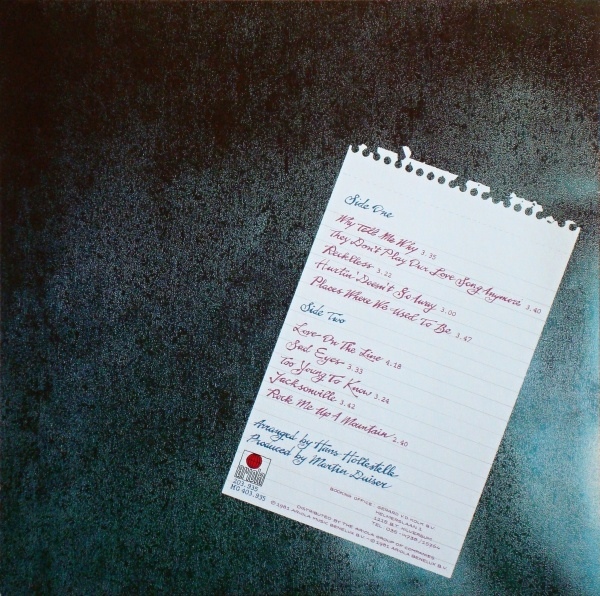 Side One
Why Tell Me Why 3.35
They Don't Play Our Love Song Anymore 3.40
Reckless 3.22
Hurtin' Doesn't Go Away 3.00
Places Where We Used To Be 3.47
Side Two
Love On The Line 4.18
Sad Eyes 3.33
Too Young To Know 3.24
Jacksonville 3.42
Rock Me Up A Mountain 2.40
Arranged by Hans Hollestelle
Produced by Martin Duiser
ARIOLA
203.935
MC 403.935
BOOKING OFFICE:
TEL. 035 -
DISTRIBUTED BY THE ARIOLA GROUP OF COMPANIES
© 1981 ARIOLA MUSIC BENELUX B.V. - ℗ 1981 ARIOLA BENELUX B.V.